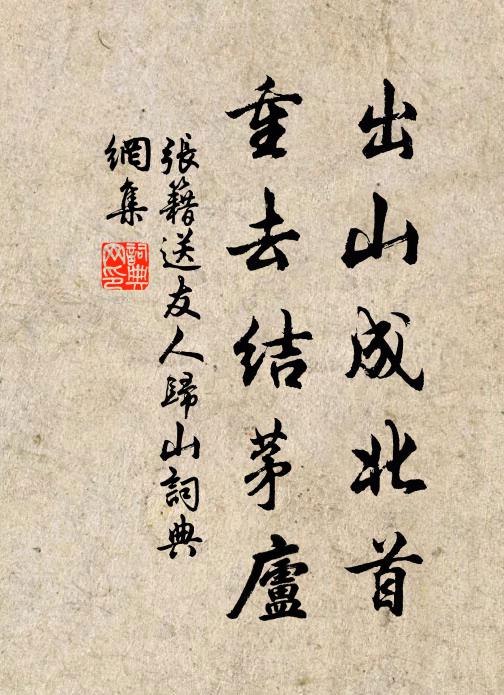 出山成北首
重去結茅廬
張籍送友人歸山詞典
網集
詞典
网印